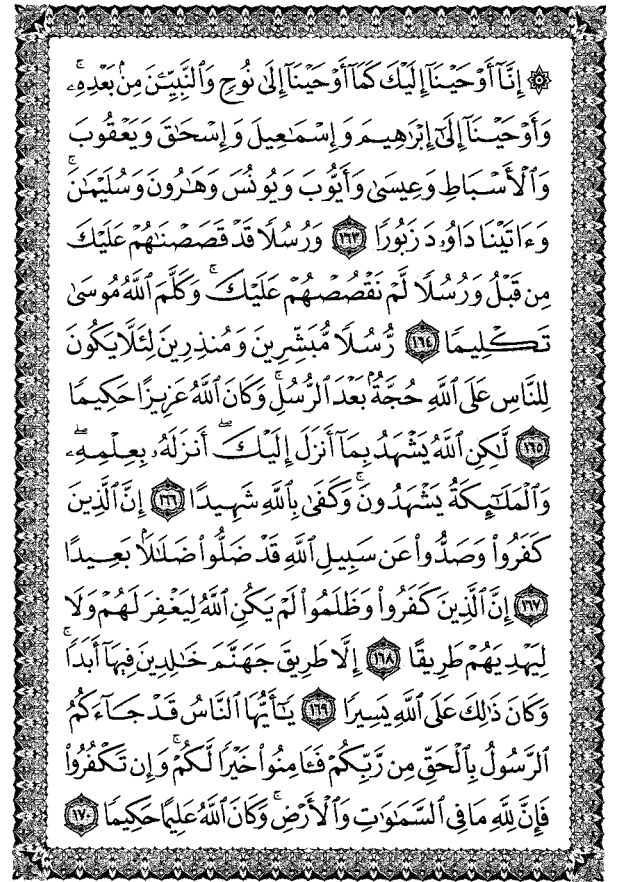 ۞ إِنَّآ أَوْحَيْنَآ إِلَيْكَ كَمَآ أَوْحَيْنَآ إِلَىٰ نُوحٍ وَٱلنَّبِيِّـۧنَ مِنۢ بَعْدِهِۦ ۚ
وَأَوْحَيْنَآ إِلَىٰٓ إِبْرَٰهِيمَ وَإِسْمَـٰعِيلَ وَإِسْحَـٰقَ وَيَعْقُوبَ
وَٱلْأَسْبَاطِ وَعِيسَىٰ وَأَيُّوبَ وَيُونُسَ وَهَـٰرُونَ وَسُلَيْمَـٰنَ ۚ
وَءَاتَيْنَا دَاوُۥدَ زَبُورًا ١٦٣ وَرُسُلًا قَدْ قَصَصْنَـٰهُمْ عَلَيْكَ
مِن قَبْلُ وَرُسُلًا لَّمْ نَقْصُصْهُمْ عَلَيْكَ ۚ وَكَلَّمَ ٱللَّهُ مُوسَىٰ
تَكْلِيمًا ١٦٤ رُّسُلًا مُّبَشِّرِينَ وَمُنذِرِينَ لِئَلَّا يَكُونَ
لِلنَّاسِ عَلَى ٱللَّهِ حُجَّةٌۢ بَعْدَ ٱلرُّسُلِ ۚ وَكَانَ ٱللَّهُ عَزِيزًا حَكِيمًا
١٦٥ لَّـٰكِنِ ٱللَّهُ يَشْهَدُ بِمَآ أَنزَلَ إِلَيْكَ ۖ أَنزَلَهُۥ بِعِلْمِهِۦ ۖ
وَٱلْمَلَـٰٓئِكَةُ يَشْهَدُونَ ۚ وَكَفَىٰ بِٱللَّهِ شَهِيدًا ١٦٦ إِنَّ ٱلَّذِينَ
كَفَرُوا۟ وَصَدُّوا۟ عَن سَبِيلِ ٱللَّهِ قَدْ ضَلُّوا۟ ضَلَـٰلًۢا بَعِيدًا
١٦٧ إِنَّ ٱلَّذِينَ كَفَرُوا۟ وَظَلَمُوا۟ لَمْ يَكُنِ ٱللَّهُ لِيَغْفِرَ لَهُمْ وَلَا
لِيَهْدِيَهُمْ طَرِيقًا ١٦٨ إِلَّا طَرِيقَ جَهَنَّمَ خَـٰلِدِينَ فِيهَآ أَبَدًا ۚ
وَكَانَ ذَٰلِكَ عَلَى ٱللَّهِ يَسِيرًا ١٦٩ يَـٰٓأَيُّهَا ٱلنَّاسُ قَدْ جَآءَكُمُ
ٱلرَّسُولُ بِٱلْحَقِّ مِن رَّبِّكُمْ فَـَٔامِنُوا۟ خَيْرًا لَّكُمْ ۚ وَإِن تَكْفُرُوا۟
فَإِنَّ لِلَّهِ مَا فِى ٱلسَّمَـٰوَٰتِ وَٱلْأَرْضِ ۚ وَكَانَ ٱللَّهُ عَلِيمًا حَكِيمًا ١٧٠